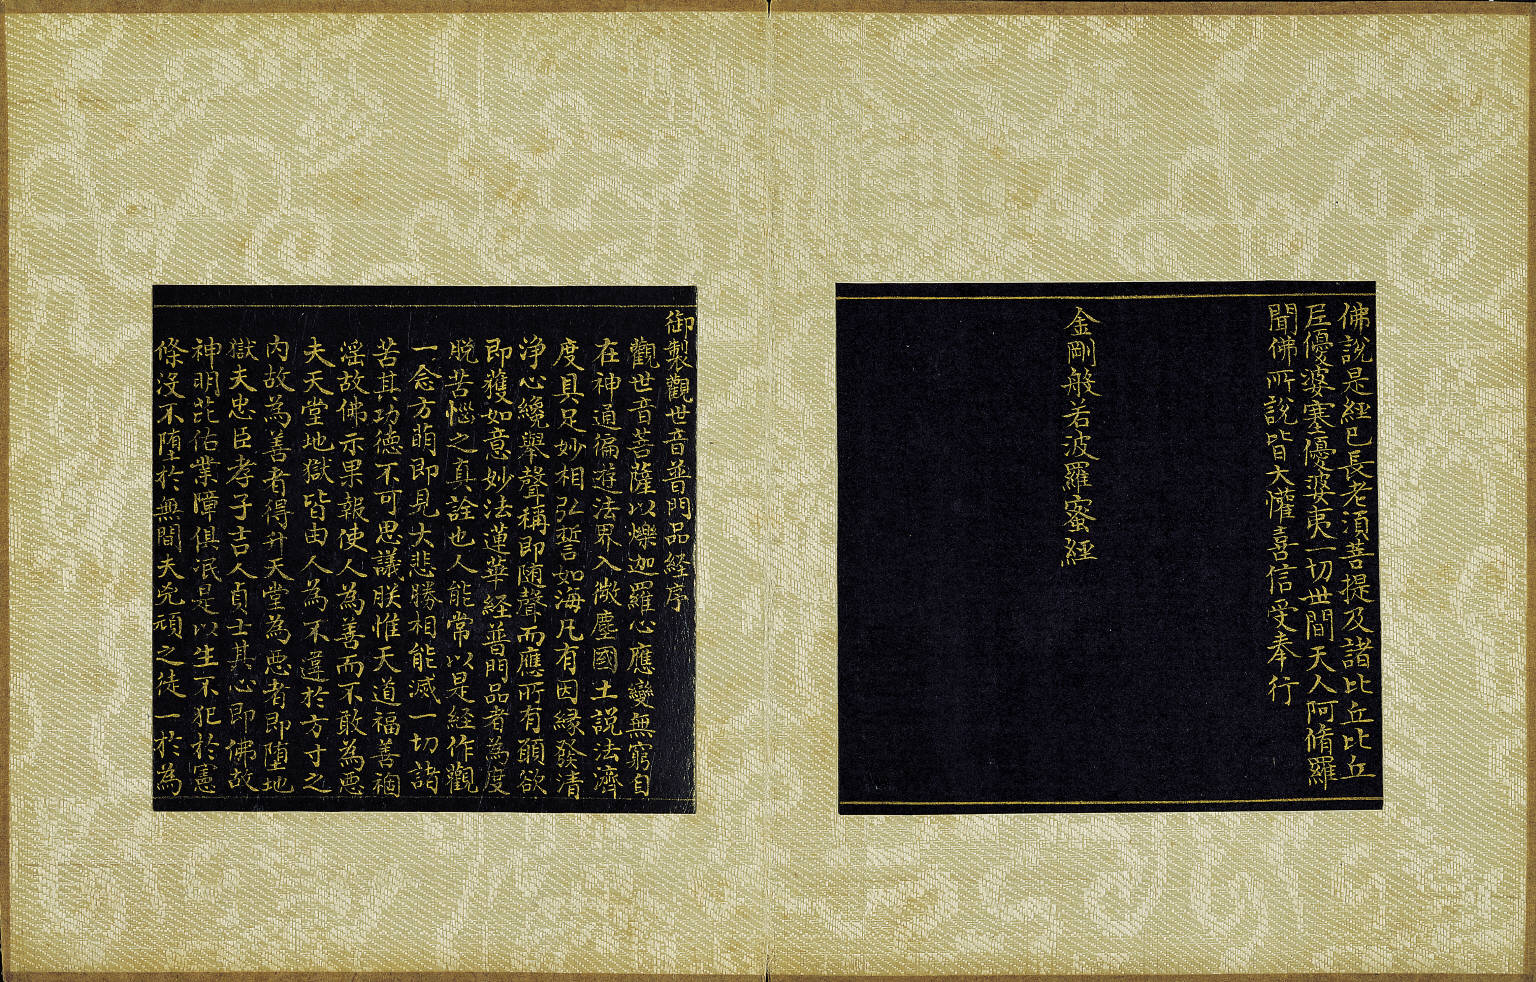 佛說是經已長老須菩提及諸比丘比丘
尼優婆塞優婆夷一切世間天人阿脩羅
聞佛所說皆大懽喜信受奉行
金剛般若波羅蜜經
御製觀世音普門品経序
觀世音菩薩以爍迦羅心應變無窮自
在神通徧遊法界入微塵國土説法濟
度具足妙相弘誓如海凡有因緣發清
淨心纔舉聲稱即随聲而應所有願欲
即獲如意妙法蓮華経普門品者為度
脫苦惱之真詮也人能常以是経作觀
一念方萌即見大悲勝相能滅一切諸
苦其功德不可思議朕惟天道福善禍
滛故佛示果報使人為善而不敢為惡
夫天堂地獄皆由人為不違於方寸之
内故為善者得升天堂為惡者即堕地
獄夫忠臣孝子吉人貞士其心即佛故
神明芘佑業障俱泯是以生不犯於憲
條沒不堕於無間夫兇頑之徒一於為